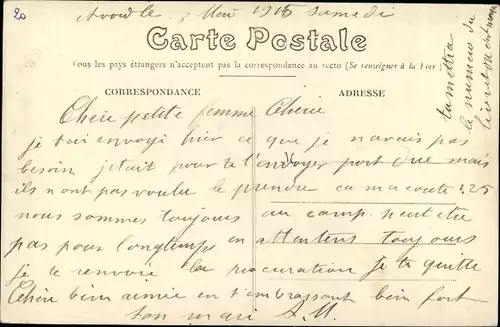 20
Avord le 3 Mai 1916 Samedi
Carte Postale
Tous les pays étrangers n'acceptent pas la correspondance au recto (Se renseigner à la
CORRESPONDANCE
ADRESSE
Chère petite femme Chérie
je tai envoyé hier ce que je navais pas
besoin jetait pour te l'envoyer port due mais
ils nont pas voulu le prendre ca ma coute 1,25
nous sommes toujours au camp peut etre
pas pour longtemps en attentens toujours
je te renvoie la procuration Je te quitte
Chère bien aimée en t'embrassant bien fort
ton mari
tu mettra
le numero du
livret